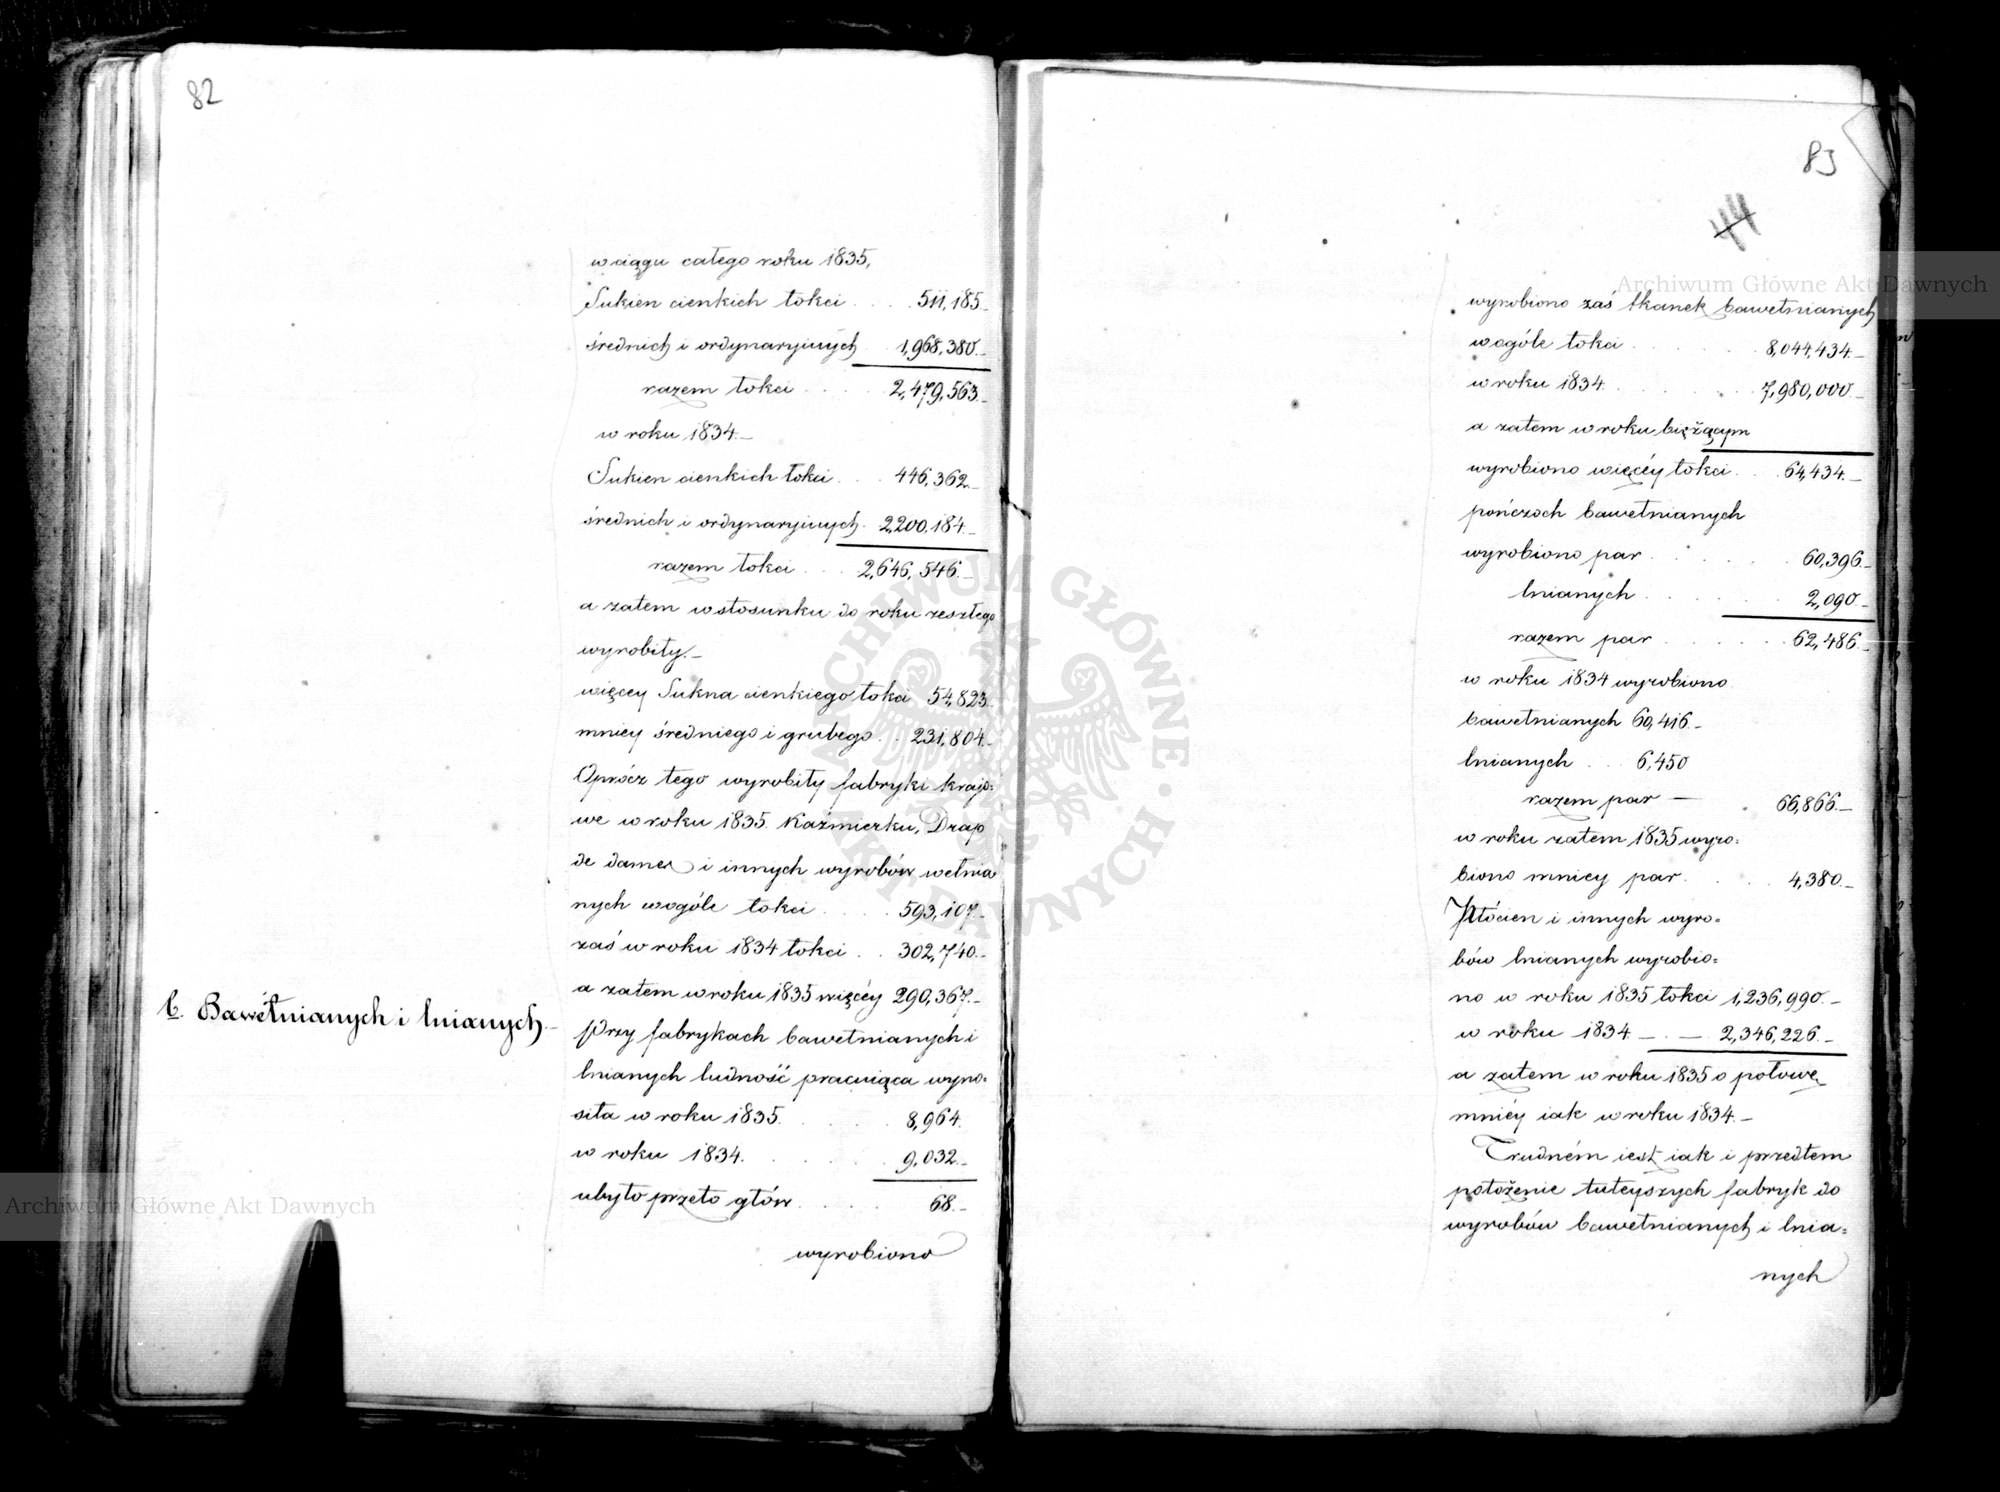 82
w ciągu całego roku 1835,
Sukien cienkich łokci . . . 511,185.-
średnich i ordynaryinych . . 1,968,380.-
razem łokci . . . . 2,479,563.-
w roku 1834.-
Sukien cienkich łokci . . . 446,362.-
średnich i ordynaryinych . 2,200,184.-
razem łokci . . . 2,646,546.-
a zatem w stosunku do roku zeszłego
wyrobiły.-
więcey Sukna cienkiego łokci 54,823.
mniey średniego i grubego . . 231,804.-
Oprócz tego wyrobiły fabryki krajo=
we w roku 1835. Kaźmierku, Drap
de dames i innych wyrobów wełnia
nych wogóle łokci . . . . 593,107.-
zaś w roku 1834 łokci . . 302,740.-
a zatem w roku 1835 więcéy 290,367.-
b. Bawełnianych i lnianych.-
Przy fabrykach bawełnianych i
lnianych ludność pracuiąca wyno=
siła w roku 1835. . . . . 8,964.
w roku 1834. . . . . 9,032.-
ubyło przeto głów . . . . 68.-
wyrobiono
83
44
wyrobiono zaś tkanek bawełnianych
wogóle łokci . . . . . 8,044,434.-
w roku 1834. . . . . . 7,980,000.-
a zatem w roku bieżącym
wyrobiono więcéy łokci . . 64,434.-
pończoch bawełnianych
wyrobiono par . . . . . 60,396.-
lnianych . . . . . 2,090.-
razem par . . . . . 62,486.-
w roku 1834 wyrobiono
bawełnianych 60,416.-
lnianych . . . 6,450
razem par — . 66,866.-
w roku zatem 1835 wyro=
biono mniey par. . . . 4,380.-
Płócien i innych wyro=
bów lnianych wyrobio=
no w roku 1835 łokci 1,236,990.-
w roku 1834 — . — 2,346,226.-
a zatem w roku 1835 o połowę
mniéy iak w roku 1834.-
Trudném iest iak i przedtem
położenie tuteyszych fabryk do
wyrobów bawełnianych i lnia=
nych
Archiwum Główne Akt Dawnych
Archiwum Główne Akt Dawnych
ARCHIWUM GŁÓWNE AKT DAWNYCH